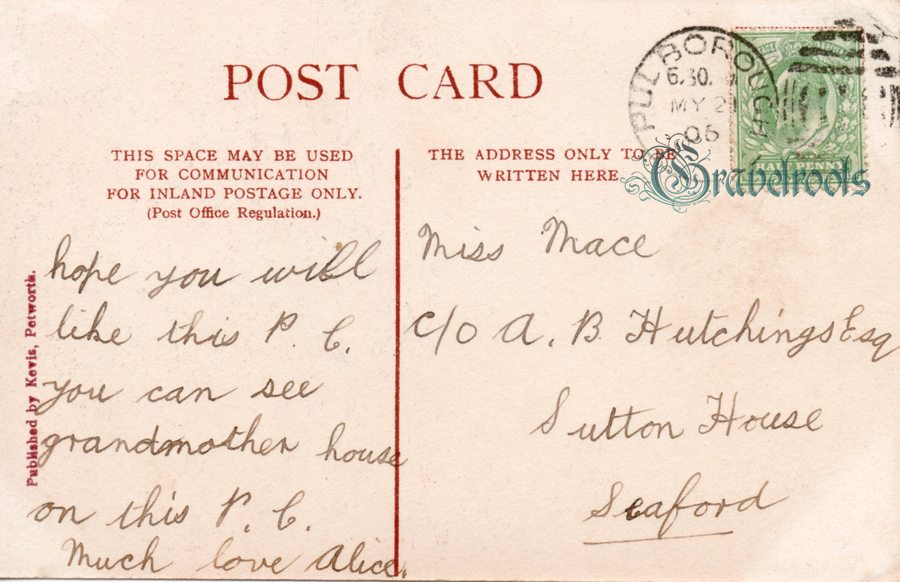 POST CARD
THIS SPACE MAY BE USED
FOR COMMUNICATION
FOR INLAND POSTAGE ONLY.
(Post Office Regulation.)
THE ADDRESS ONLY TO BE
WRITTEN HERE
PULBOROUGH
6.30
MY 2
06
HALFPENNY
Gravelroots
Published by Kevis, Petworth.
hope you will
like this P. C.
you can see
grandmother house
on this P. C.
Much love Alice.
Miss Mace
c/o A. B Hutchings Esq
Sutton House
Seaford